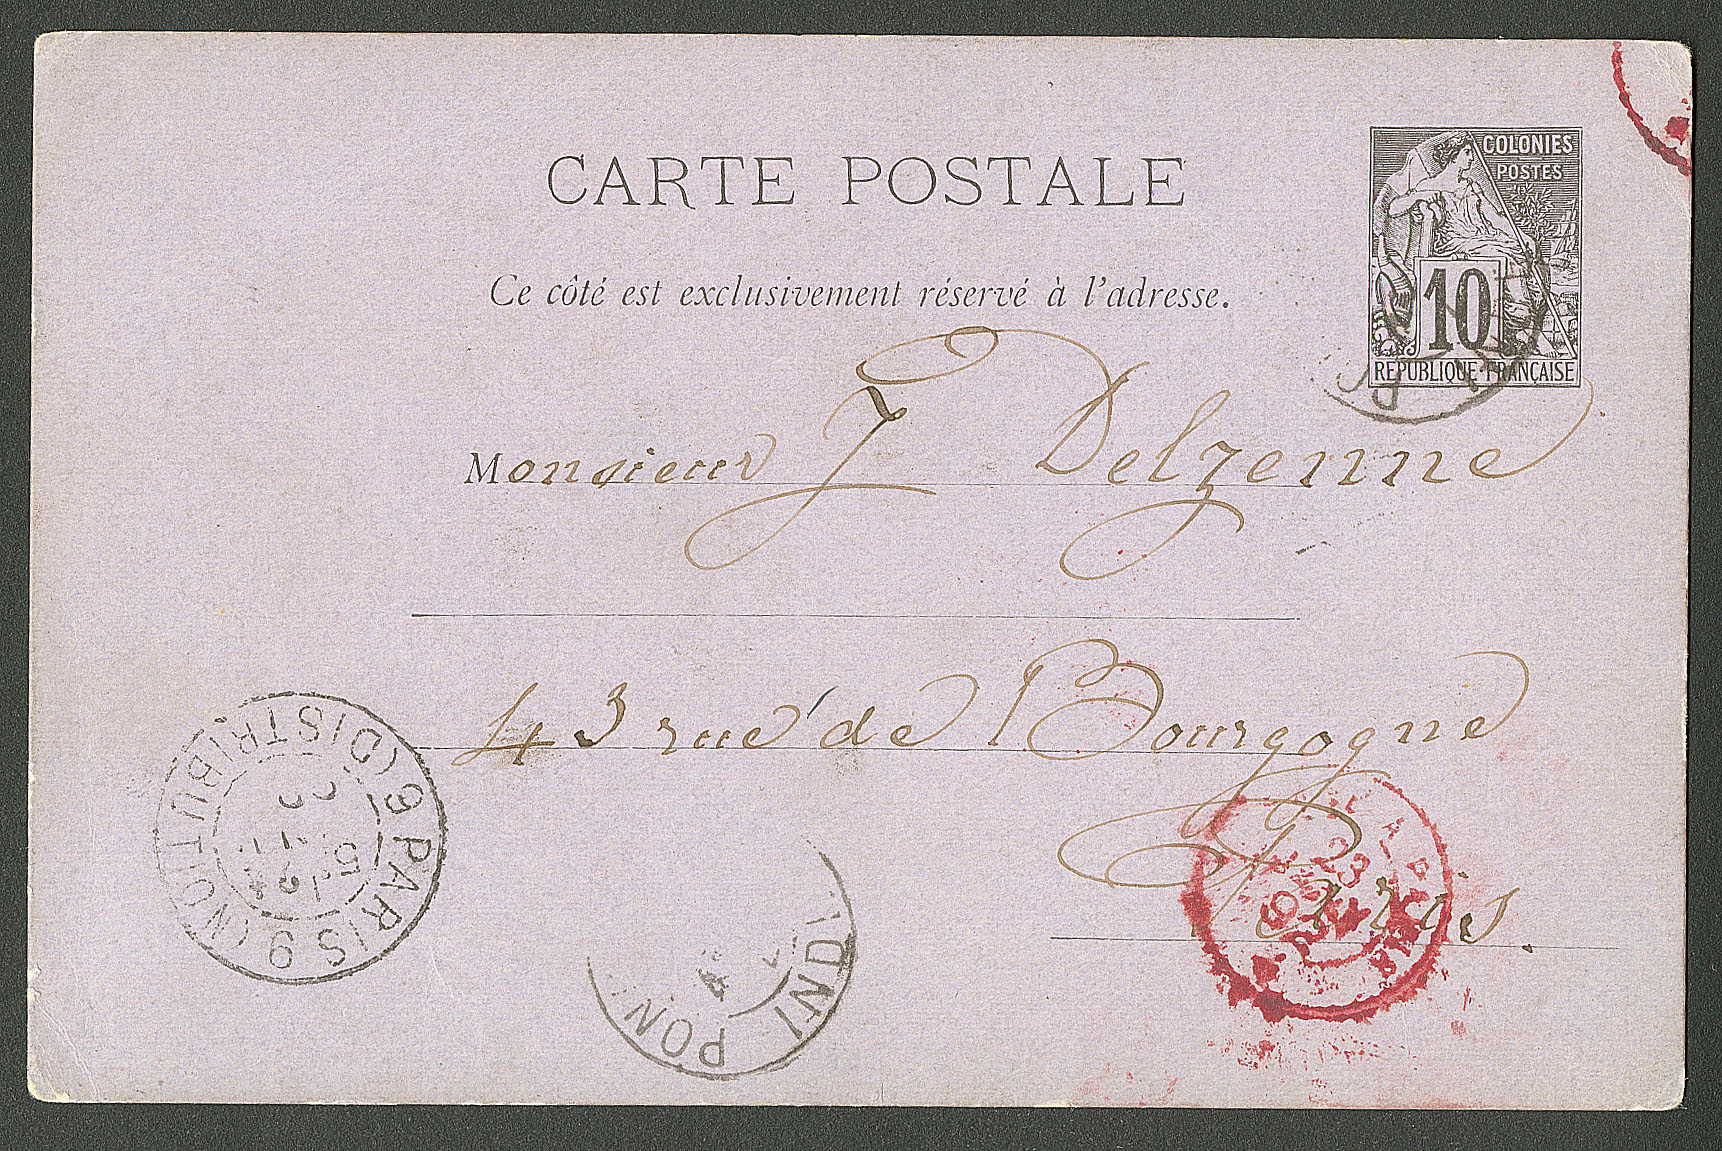 CARTE POSTALE
COLONIES
POSTES
Ce côté est exclusivement réservé à l'adresse.
10
RÉPUBLIQUE FRANÇAISE
Monsieur J Delzenne
43 rue de Bourgogne
Paris.
9 PARIS 9 (DISTRIBUTION)
PON
INDI